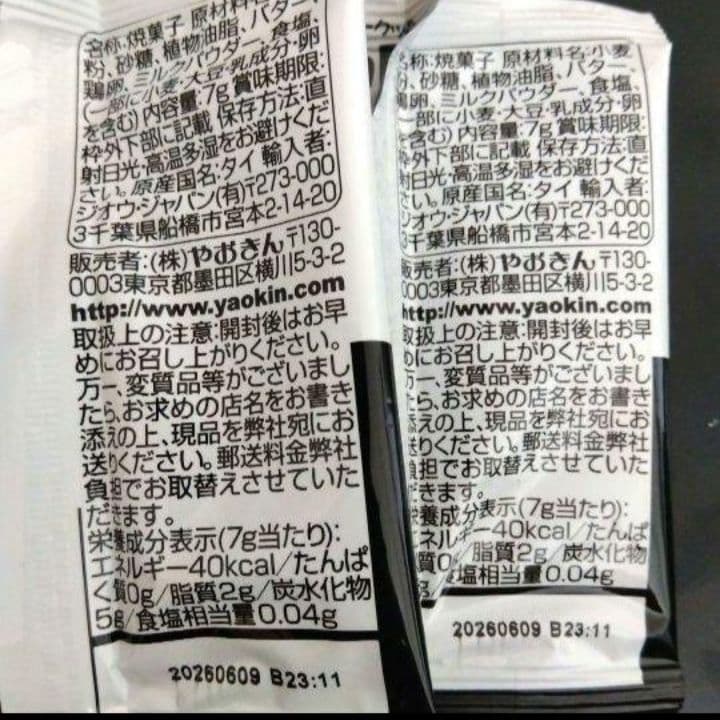 名称:焼菓子 原材料名:小麦
粉、砂糖、植物油脂、バター、
鶏卵、ミルクパウダー、食塩、
(一部に小麦・大豆・乳成分・卵
を含む) 内容量:7g 賞味期限:
枠外下部に記載 保存方法:直
射日光・高温多湿をお避けくだ
さい。原産国名:タイ 輸入者:
ジオウ・ジャパン(有)〒273-000
3千葉県船橋市宮本2-14-20
販売者:(株)やおきん 〒130-
0003東京都墨田区横川5-3-2
http://www.yaokin.com
取扱上の注意:開封後はお早
めにお召し上がりください。
万一、変質品等がございまし
たら、お求めの店名をお書き
添えの上、現品を弊社宛にお
送りください。郵送料金弊社
負担でお取替えさせていた
だきます。
栄養成分表示(7g当たり):
エネルギー40kcal/たんぱ
く質0g/脂質2g/炭水化物
5g/食塩相当量0.04g
20260609 B23:11
名称:焼菓子 原材料名:小麦
、砂糖、植物油脂、バター、
鶏卵、ミルクパウダー、食塩、
一部に小麦・大豆・乳成分・卵
を含む) 内容量:7g 賞味期限:
枠外下部に記載 保存方法:直
射日光・高温多湿をお避けくだ
さい。原産国名:タイ 輸入者:
ジオウ・ジャパン(有)〒273-000
3千葉県船橋市宮本2-14-20
販売者:(株)やおきん 〒130-
0003東京都墨田区横川5-3-2
http://www.yaokin.com
取扱上の注意:開封後はお早
めにお召し上がりください。
万一、変質品等がございまし
たら、お求めの店名をお書き
添えの上、現品を弊社宛にお
送りください。郵送料金弊社
負担でお取替えさせていた
だきます。
栄養成分表示(7g当たり):
エネルギー40kcal/たんぱ
質0g/脂質2g/炭水化物
塩相当量0.04g
20260609 B23:11